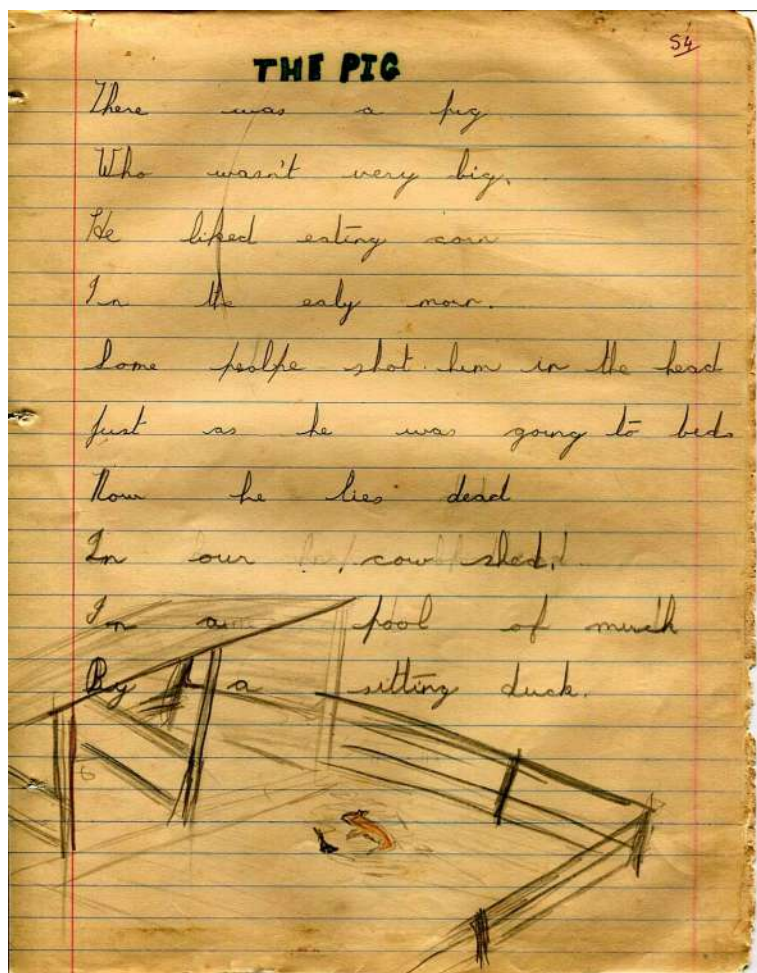 54
THE PIG
There was a pig
Who wasn't very big,
He liked eating corn
In the ealy morn.
Some pealpe shot him in the head
Just as he was going to beds
Now he lies dead
In our cow shed.
In a pool of much
By a sitting duck.